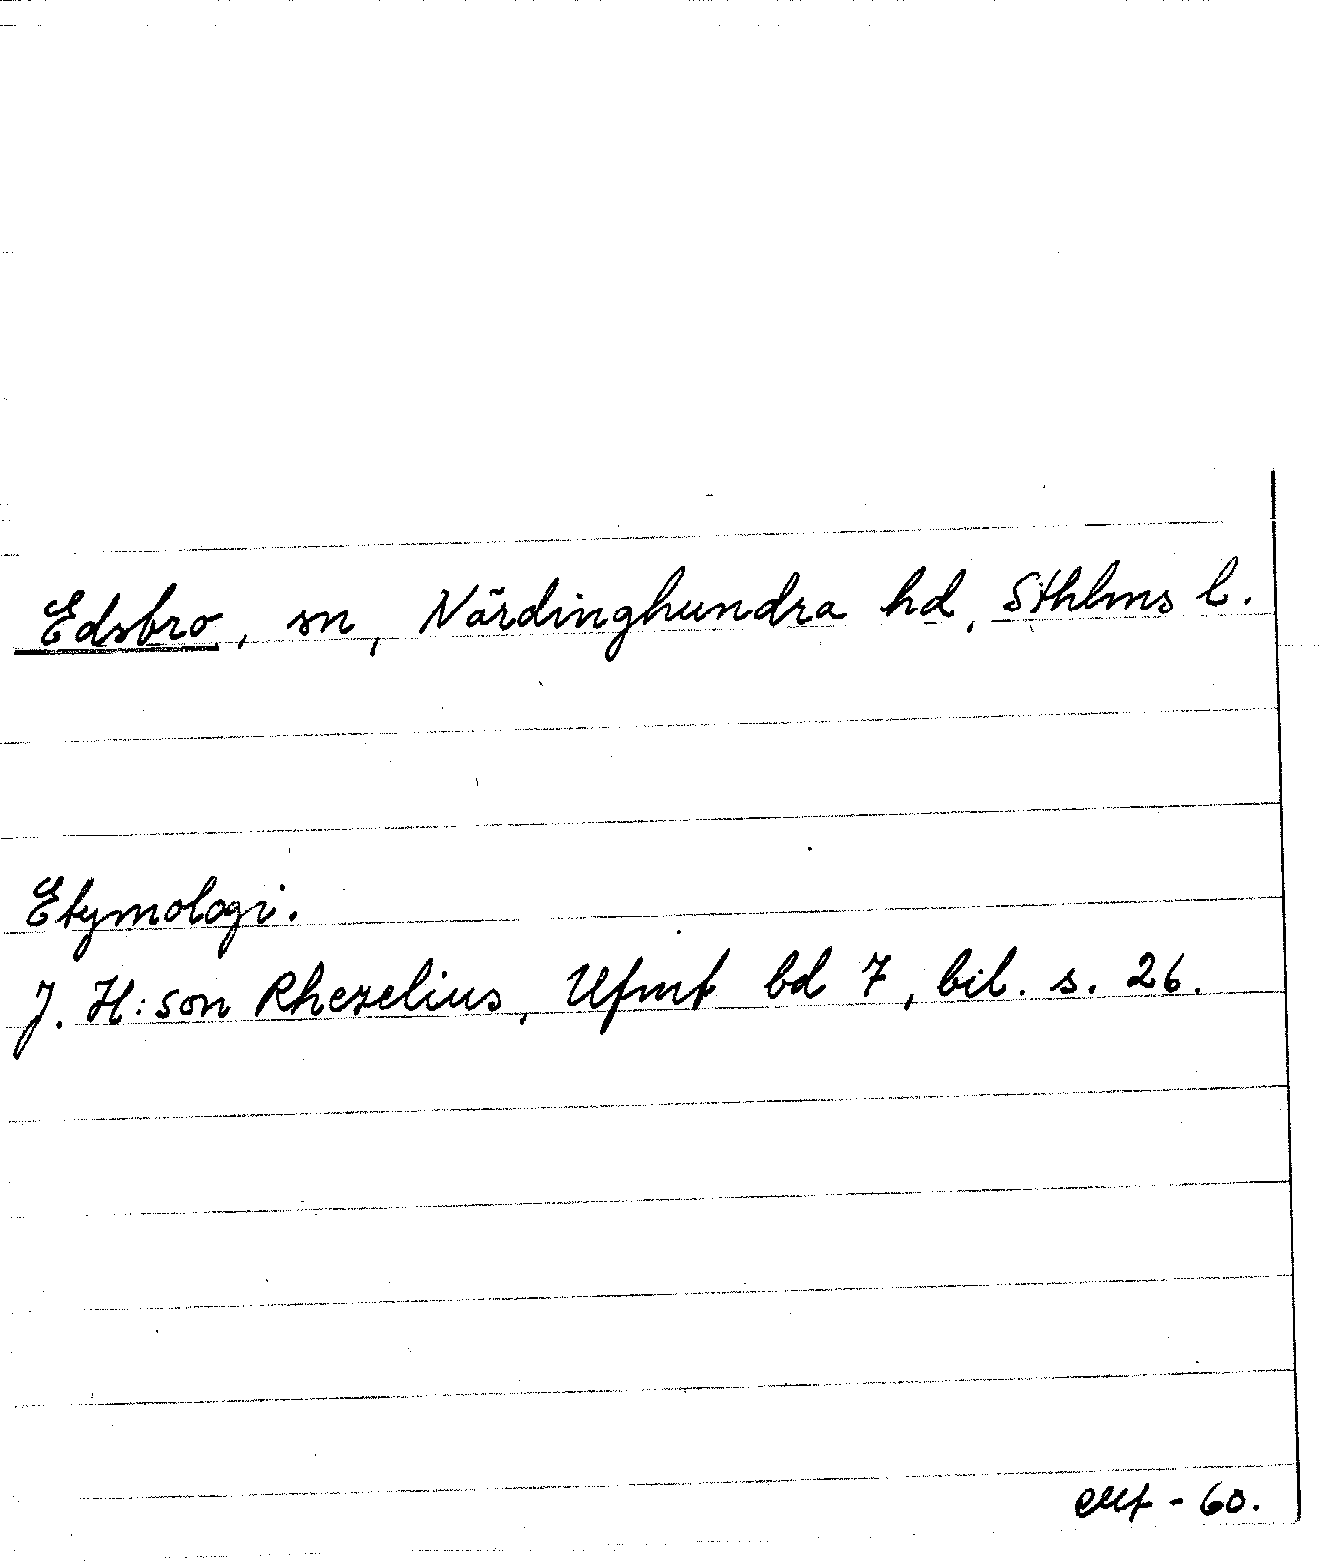 Edsbro, sn, Närdinghundra hd, Sthlms l.
Etymologi.
J. H:son Rhezelius, Ufmt bd 7, bil. s. 26.
- 60.